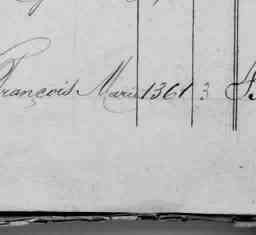 François Marie 1361 3